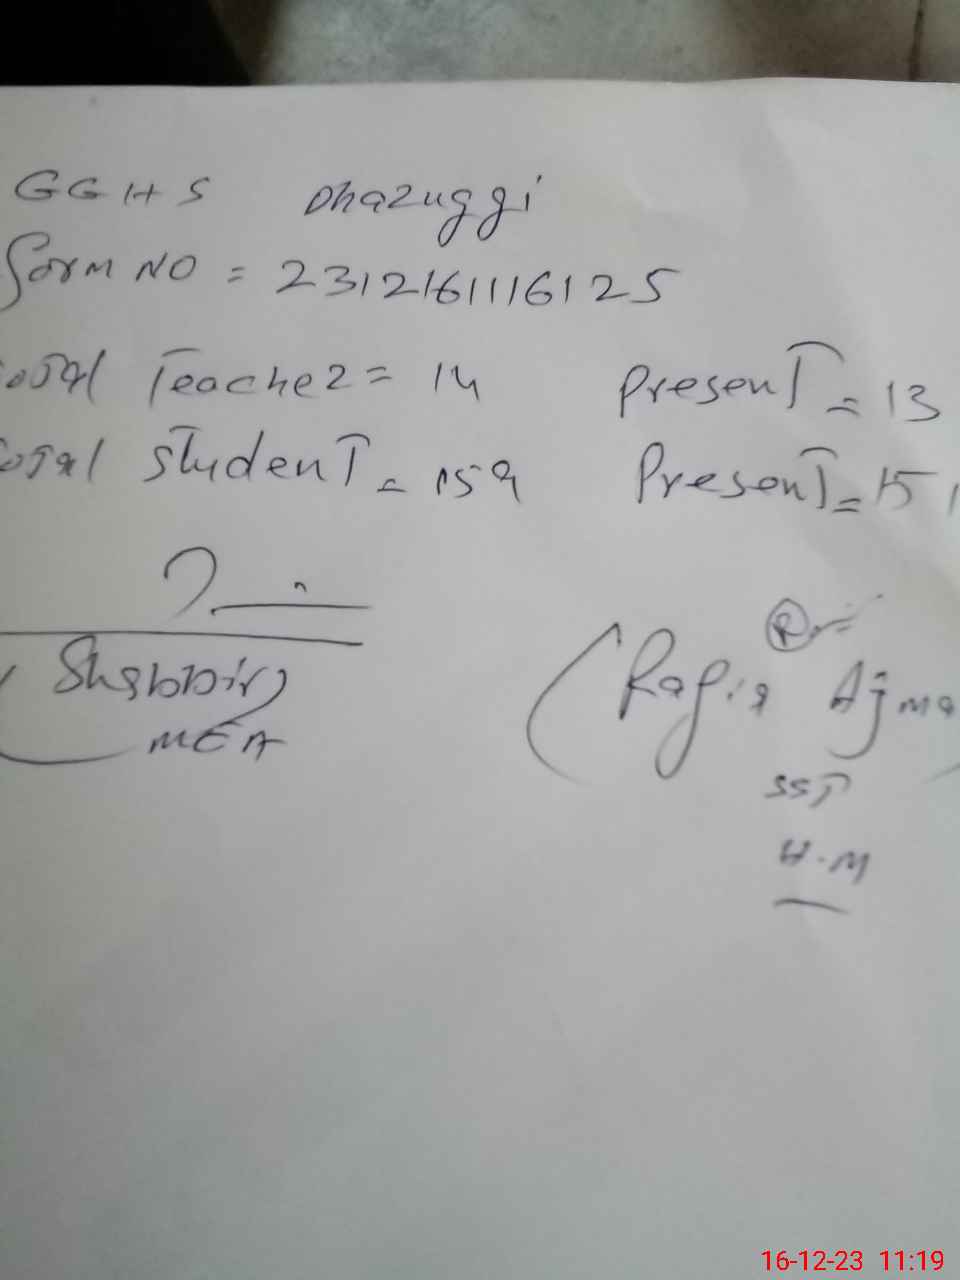 GGHS Dhazuggi
form NO = 2312161116125
Total Teacher = 14 Present = 13
Total Student = 159 Present = 151
(Shabbir)
MEA
(Rafia Ajma
SST
H.M
16-12-23 11:19